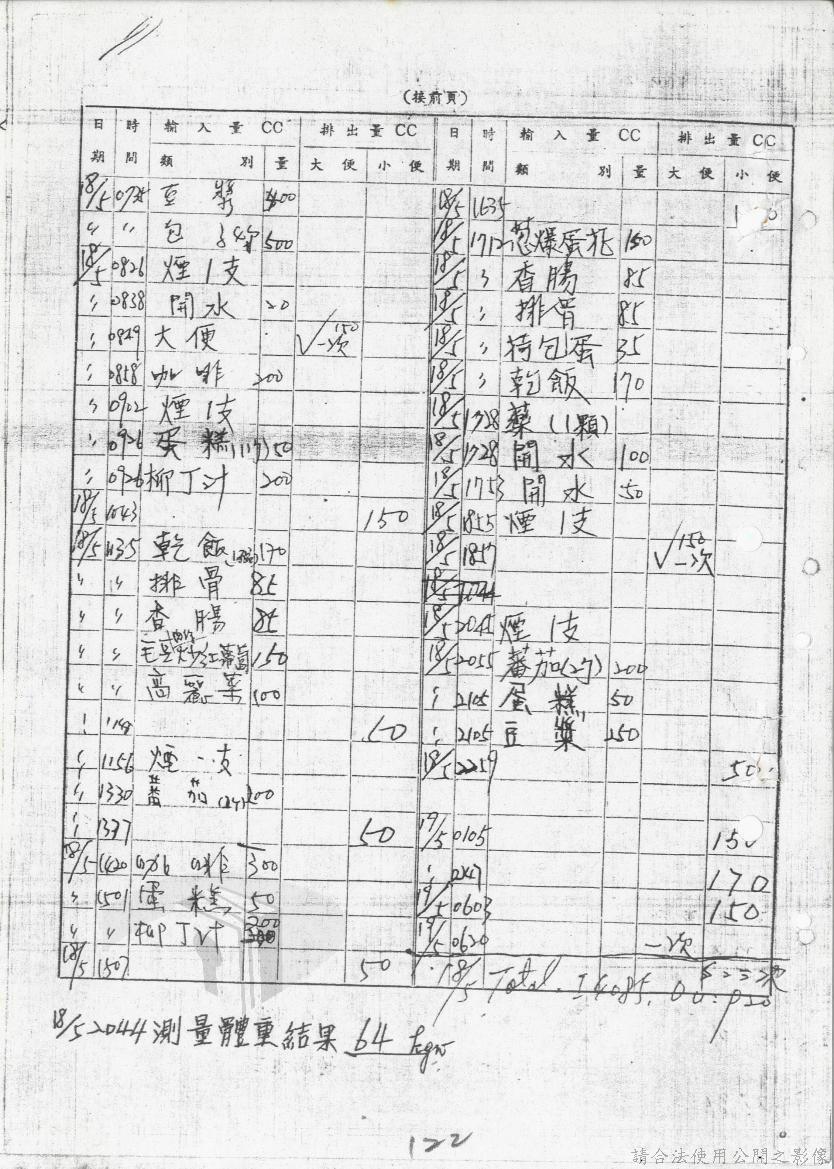 (接前頁)
日期 時間 輸入量CC 類別 量 排出量CC 大便 小便
18/5 豆漿 400
〃 〃 包 500
18/5 0826 煙1支
〃 0838 開水 20
〃 0849 大便 √150 一次
〃 0858 咖啡 200
〃 0902 煙1支
〃 0926 蛋糕 50
〃 0926 柳丁汁 200
18/5 1043 150
18/5 1135 乾飯 170
〃 〃 排骨 85
〃 〃 香腸 85
〃 〃 150
〃 〃 高麗菜 100
〃
〃 1156 煙一支
〃 1330 蕃茄
〃 1337 50
18/5 1420 咖啡 300
〃 1501 蛋糕 50
〃 〃 柳丁汁
18/5 1507 50
日期 時間 輸入量CC 類別 量 排出量CC 大便 小便
18/5 1635
18/5 1712 蔥爆蛋花 150
18/5 〃 香腸 85
18/5 〃 排骨 85
18/5 〃 荷包蛋 35
18/5 〃 乾飯 170
18/5 1728 藥(1顆)
18/5 1728 開水 100
18/5 1753 開水 50
18/5 1855 煙1支
18/5 1857 √150 一次
18/5
18/5 2044 煙1支
18/5 2055 蕃茄 200
〃 2105 蛋糕 50
〃 2105 豆漿 250
18/5 2259 50
19/5 0105 150
〃 0247 170
19/5 0603 150
19/5 0620 一次
18/5 Total. I 4085.
18/5 2044 測量體重結果 64 kgw
122
請合法使用公開之影像